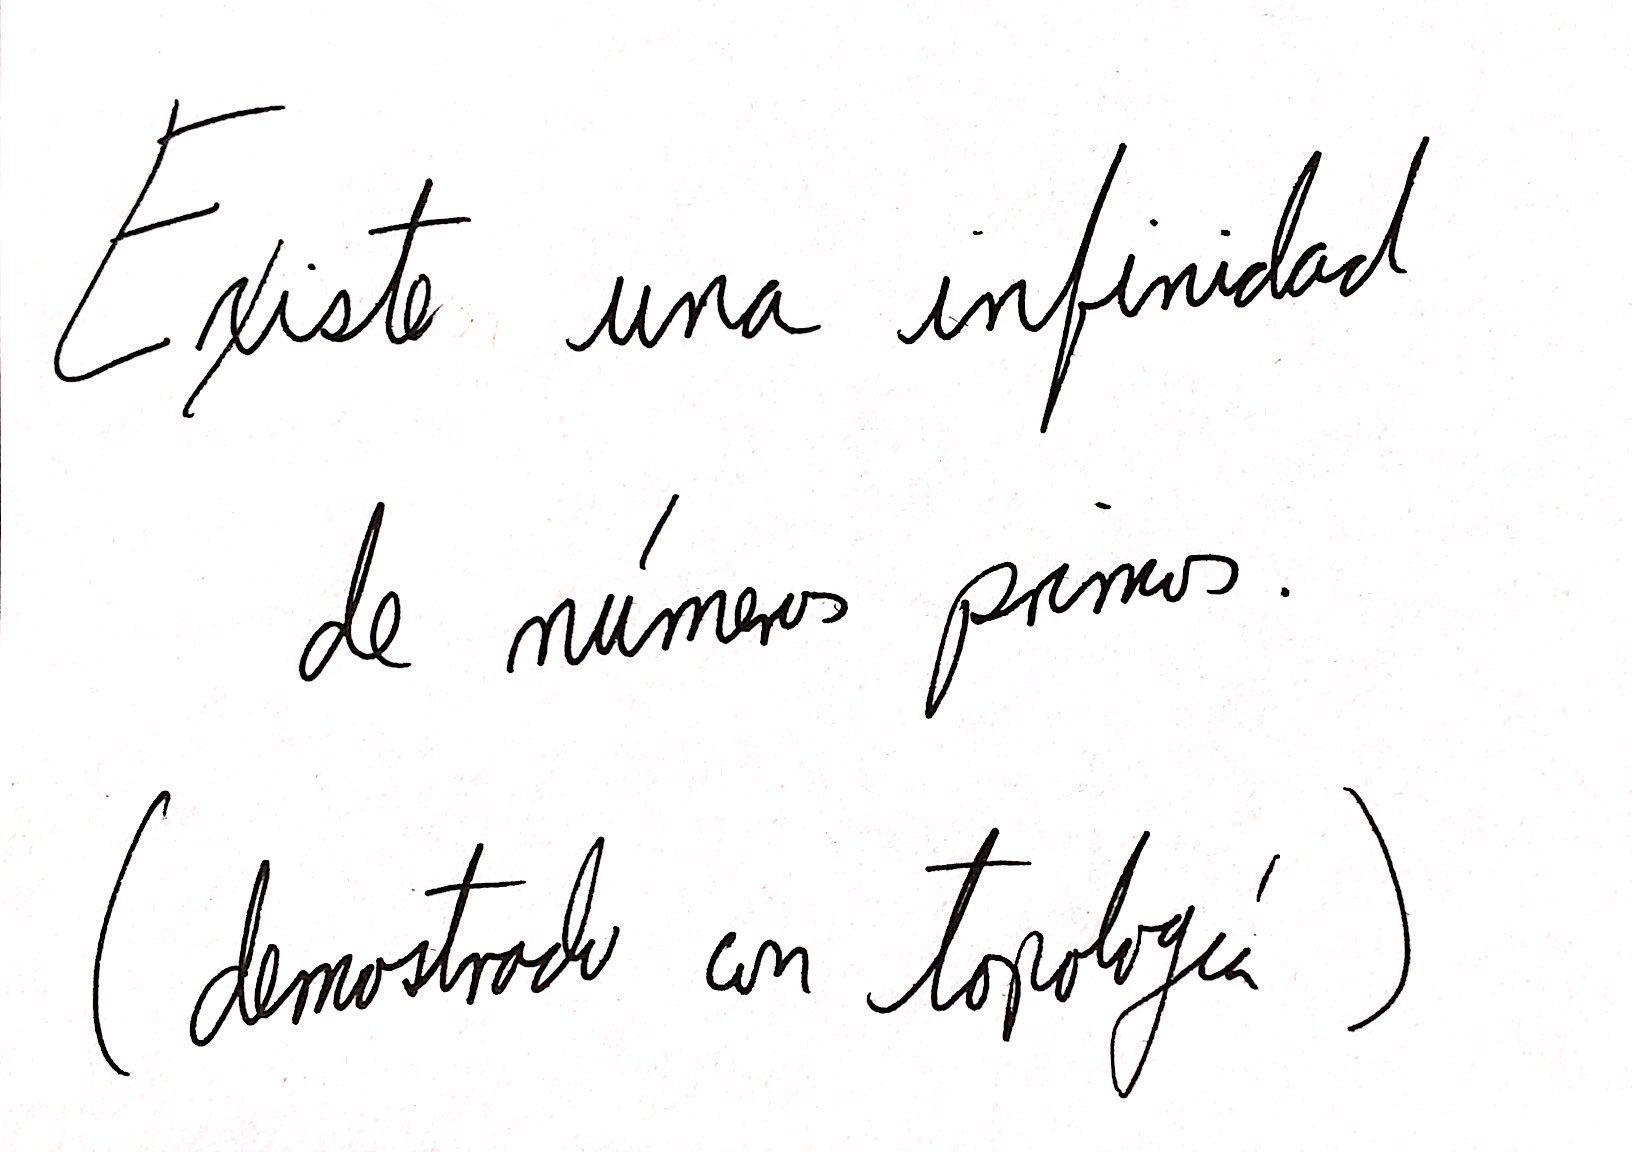 Existe una infinidad
de números primos.
(demostrado con topología)